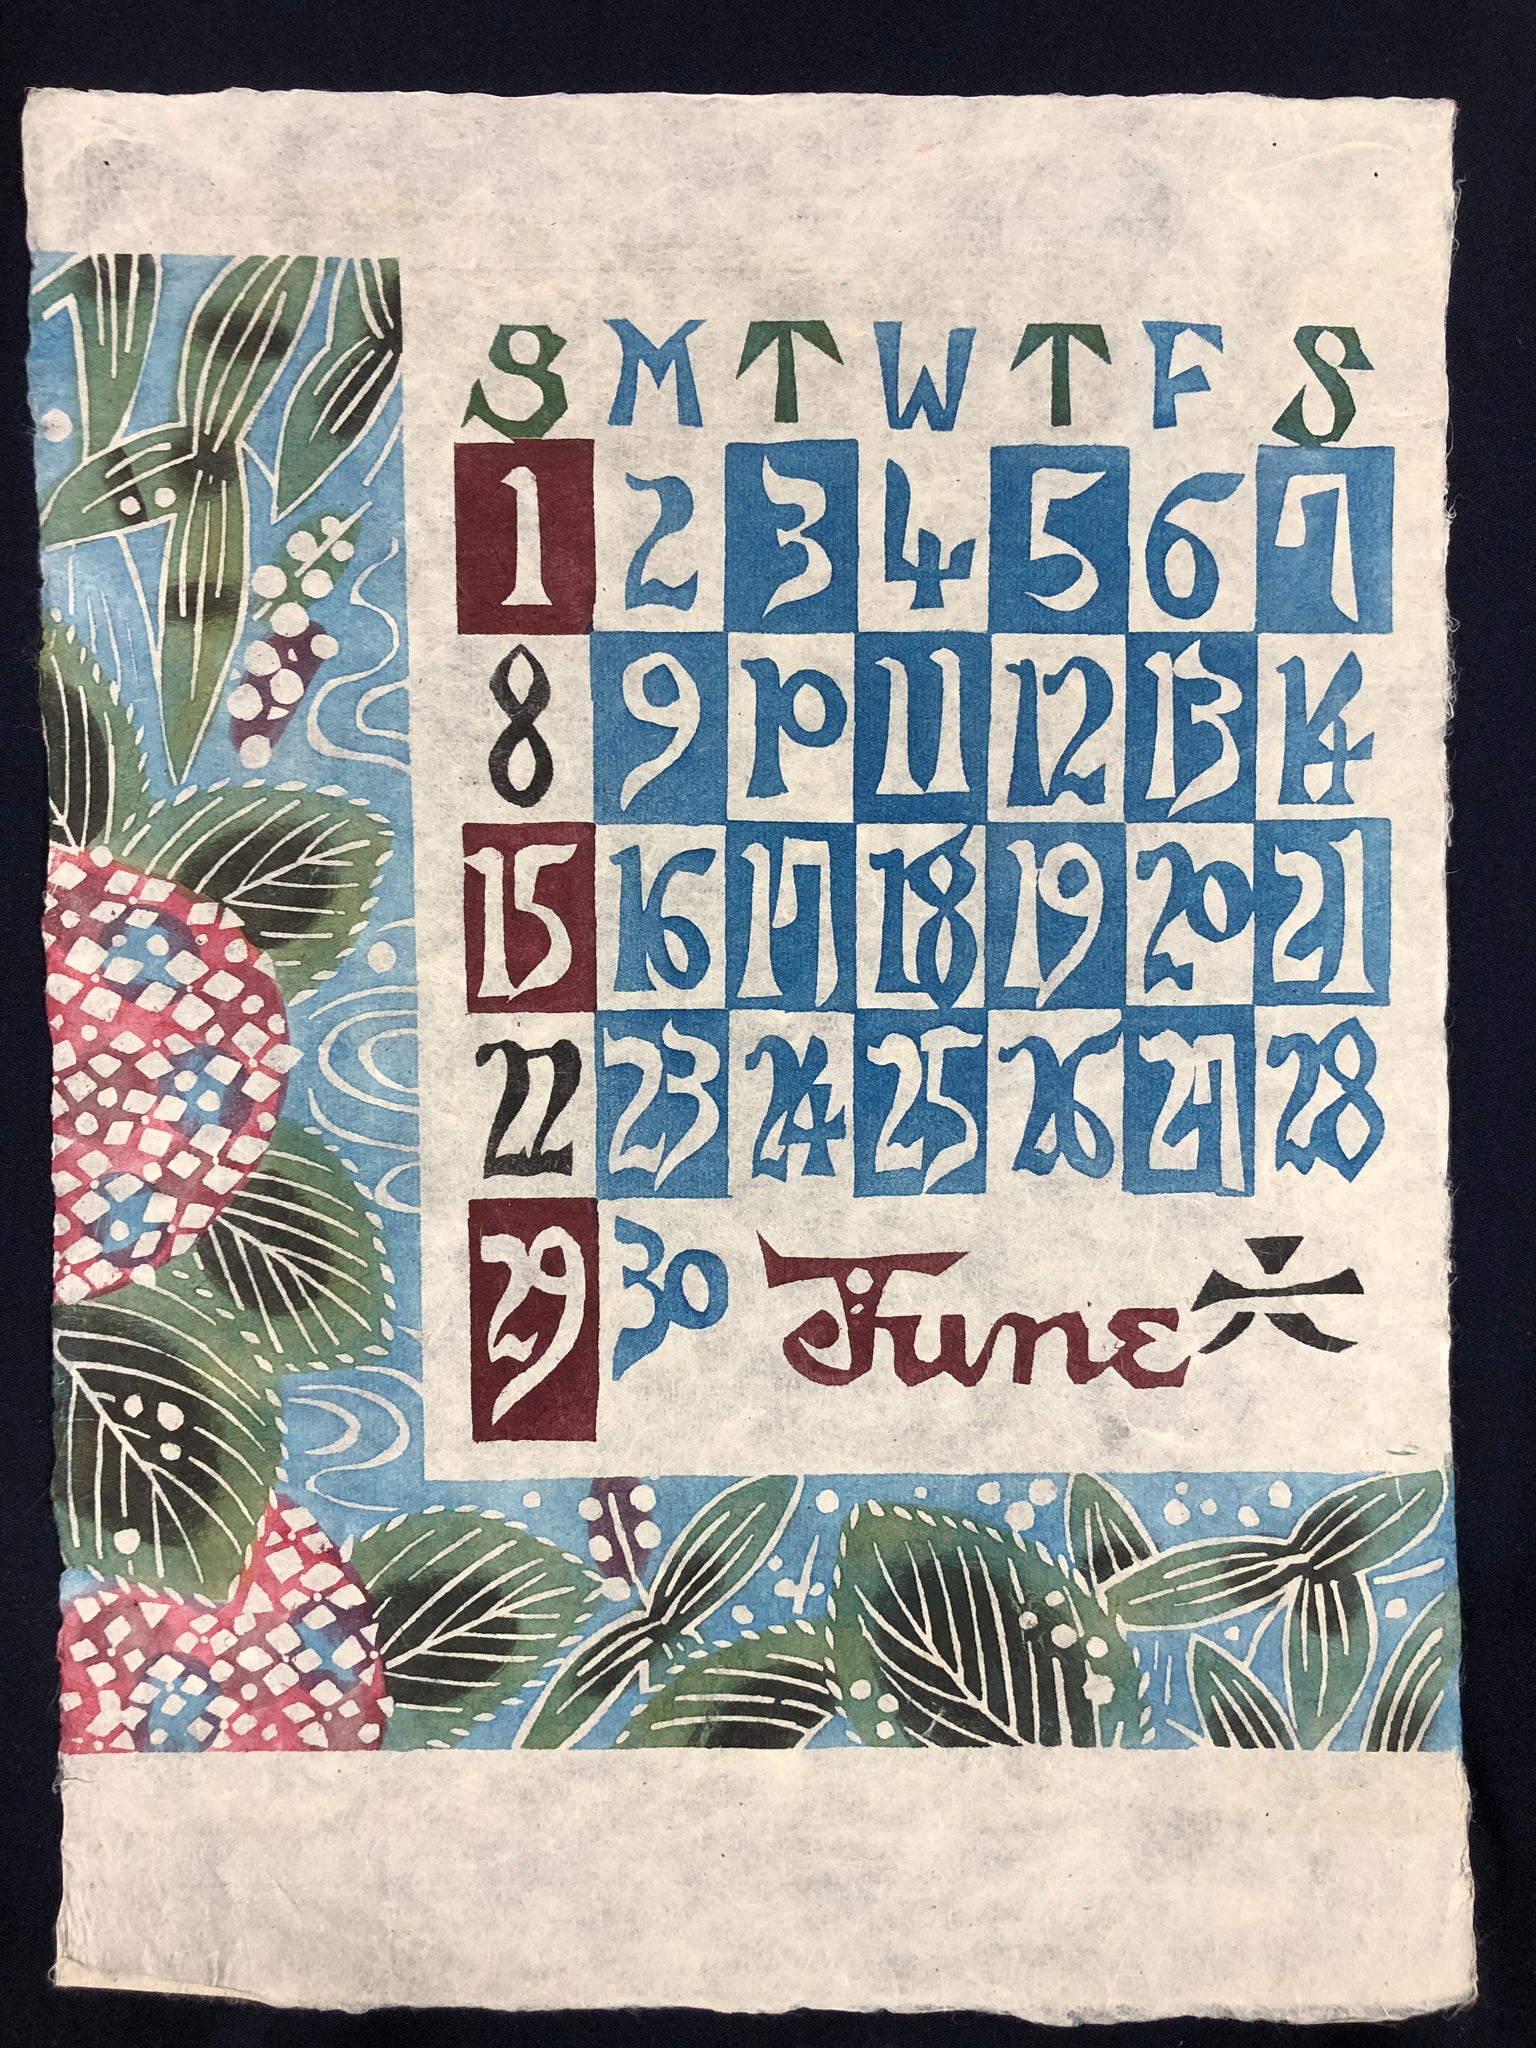 S M T W T F S
1 2 3 4 5 6 7
8 9 10 11 12 13 14
15 16 17 18 19 20 21
22 23 24 25 26 27 28
29 30 June 六